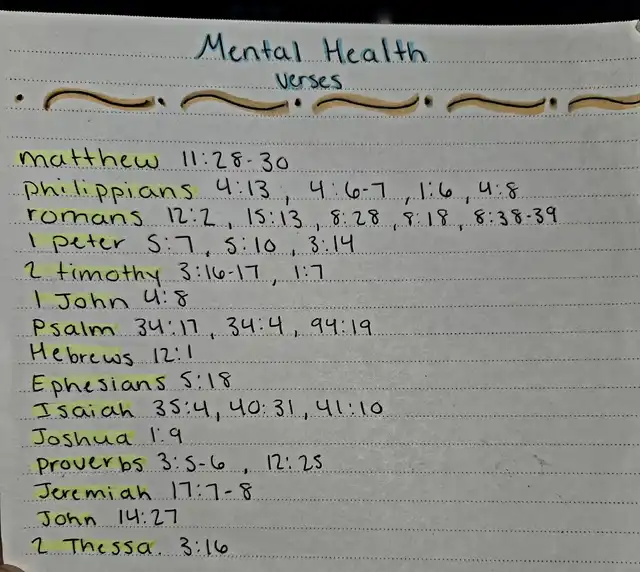 Mental Health
Verses
matthew 11:28-30
philippians 4:13, 4:6-7, 1:6, 4:8
romans 12:2, 15:13, 8:28, 8:18, 8:38-39
1 peter 5:7, 5:10, 3:14
2 timothy 3:16-17, 1:7
1 John 4:8
Psalm 34:17, 34:4, 94:19
Hebrews 12:1
Ephesians 5:18
Isaiah 35:4, 40:31, 41:10
Joshua 1:9
proverbs 3:5-6, 12:25
Jeremiah 17:7-8
John 14:27
2 Thessa. 3:16